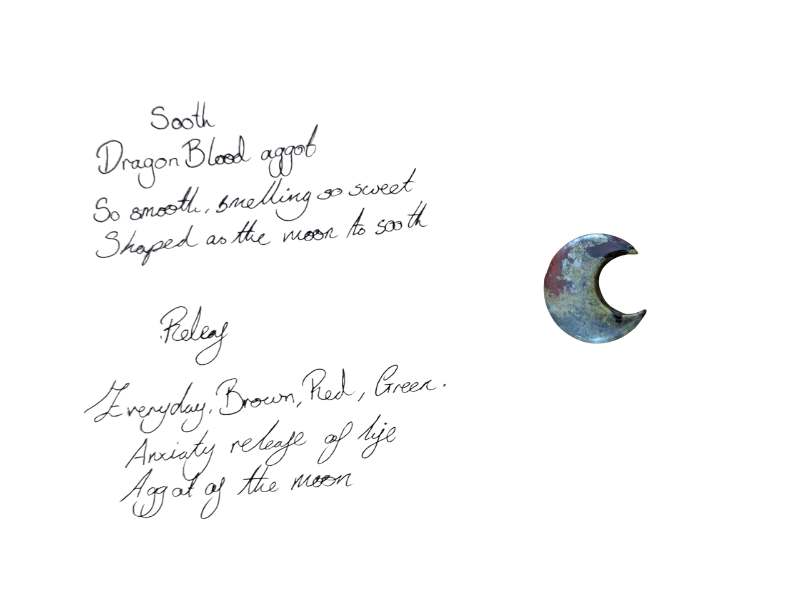 Sooth
Dragon Blood aggot
So smooth, smelling so sweet
Shaped as the moon to sooth
Releaf
Everyday, Brown, Red, Green.
Anxiaty releafe of life
Aggat of the moon